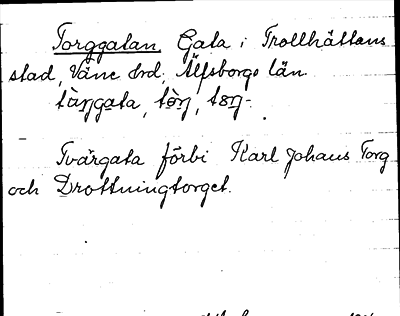 Torggatan Gata i Trollhättans
stad, Väne hrd, Älfsborgs län.
Tvärgata förbi Karl Johans Torg
och Drottningtorget.